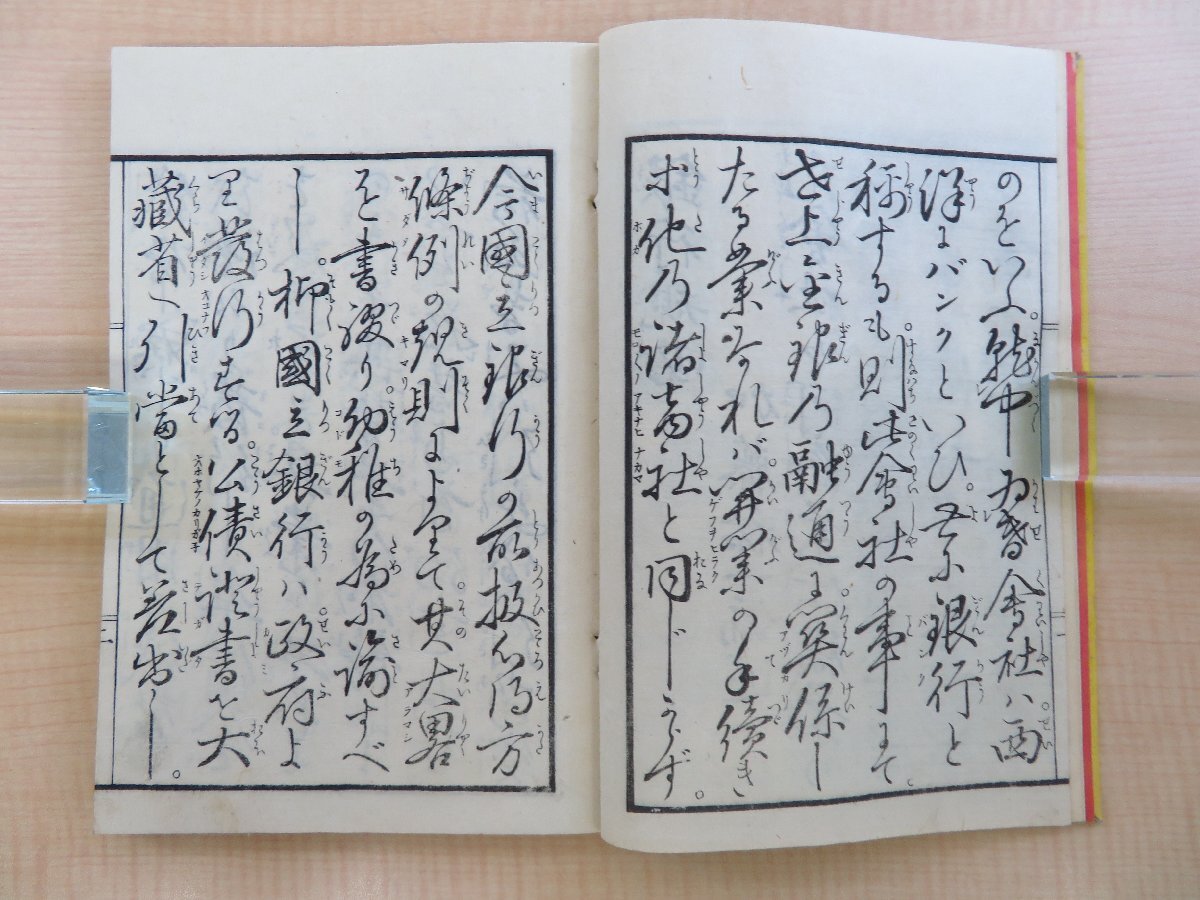 のをいふ。就中為替會社ハ西
洋にバンクといひ。世に銀行と
稱するも。則此會社の事にて。
世上金銀乃融通に関係し
たる業なれバ。開業の手續き
等他乃諸商社と同じからず。
今國立銀行の取扱心得方
條例の規則によりて。其大畧
を書綴り。幼稚の為に諭すべ
し。抑國立銀行ハ。政府よ
り發行する。公債證書を大
藏省へ引當として差出し。